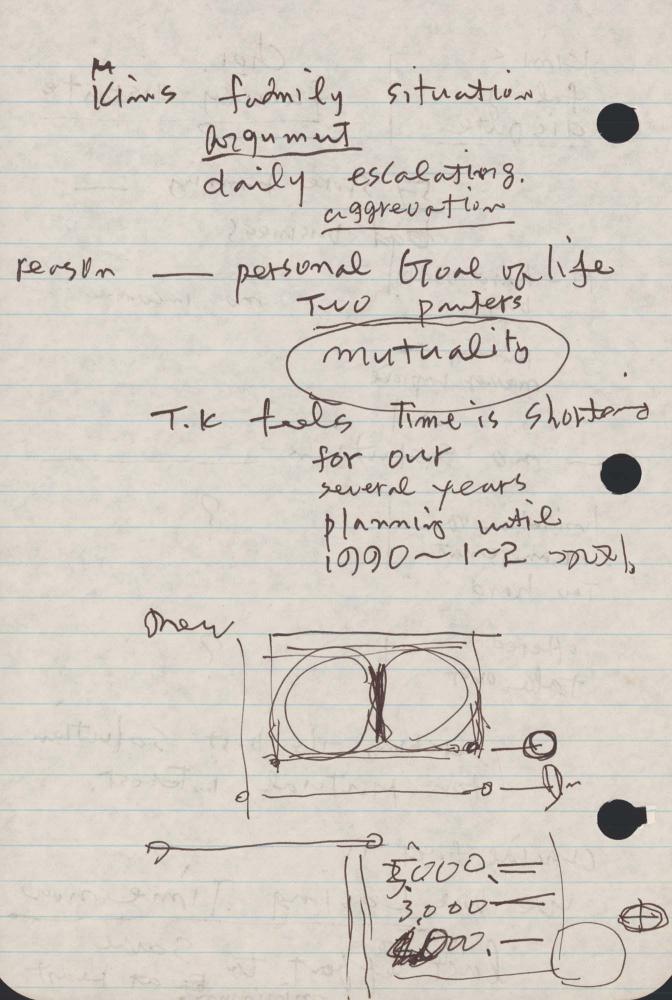 Kims fadmily situation
argument
daily escalating.
aggrevation
reason — personal Goal of life
Two
mutuality
T.K feels Time is shorten
for our
several years
planning until
1990~1~2
5,000.=
3,000—
000.—